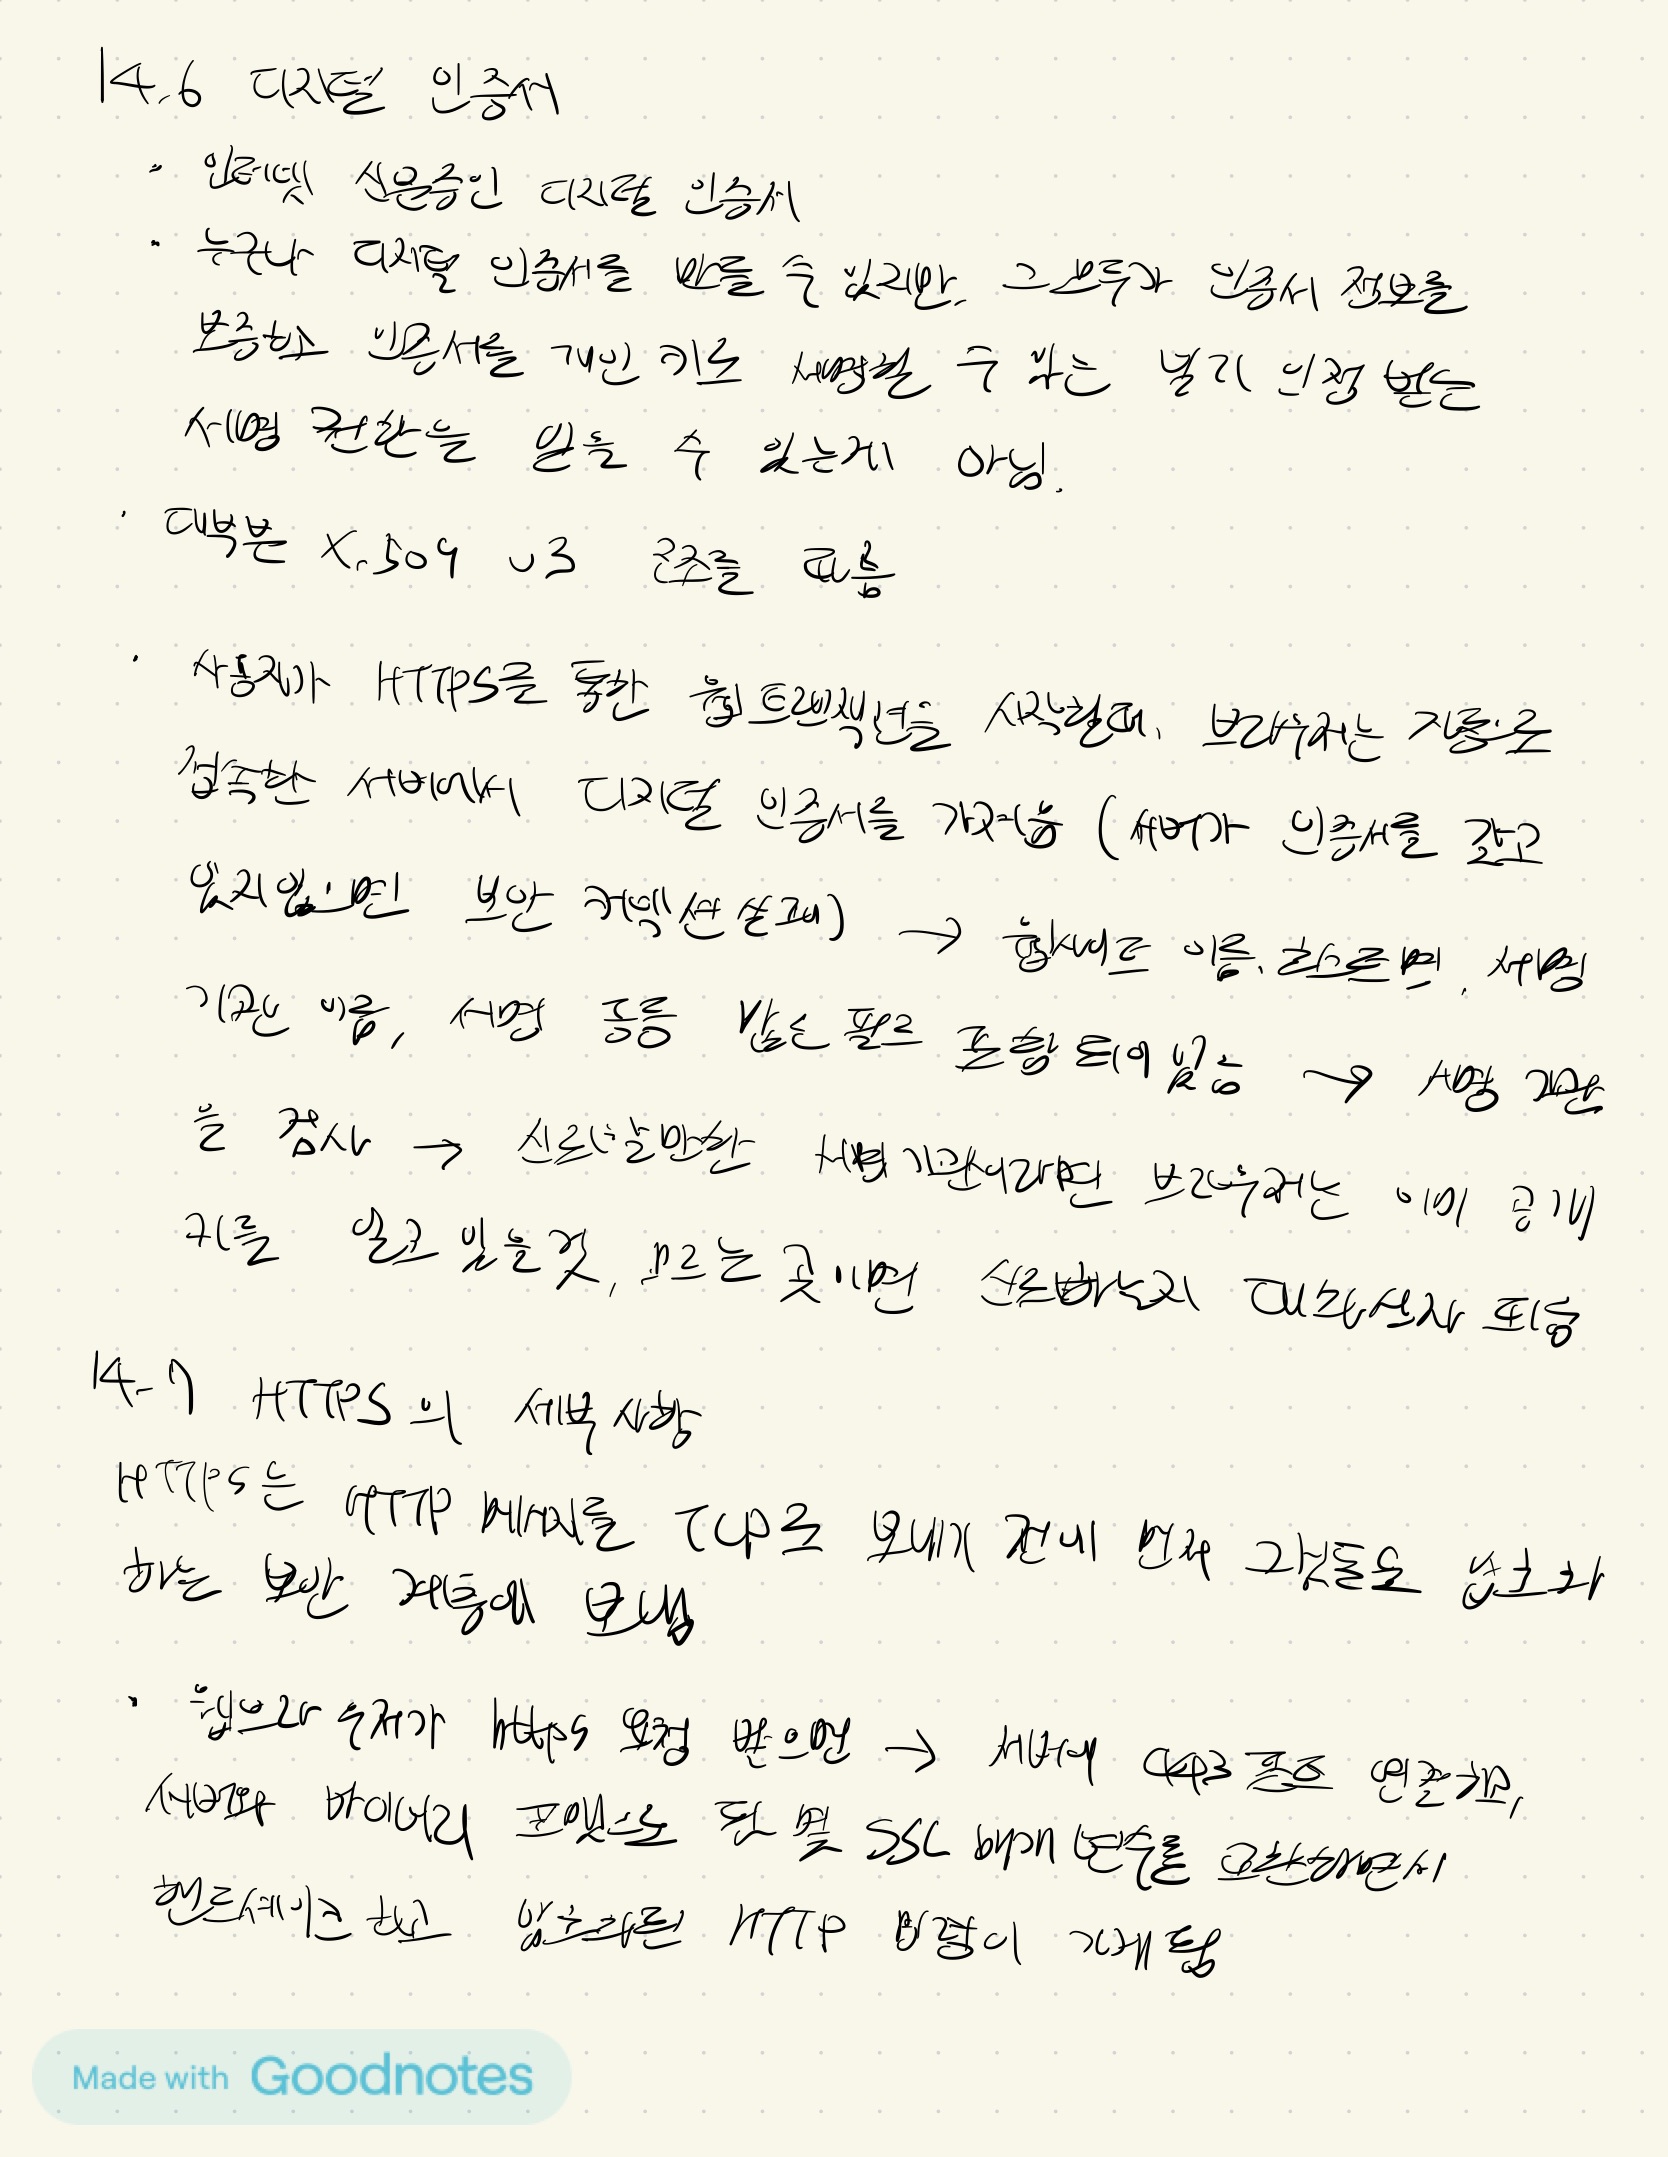 14.6 디지털 인증서
· 인터넷 신분증인 디지털 인증서
· 누구나 디지털 인증서를 만들 수 있지만, 그 모두가 인증서 정보를
보증하고 인증서를 개인 키로 서명할 수 있는 널리 인정 받는
서명 권한을 얻을 수 있는게 아님.
· 대부분 X.509 v3 구조를 따름
· 사용자가 HTTPS를 통한 웹 트랜잭션을 시작할때, 브라우저는 자동으로
접속한 서버에서 디지털 인증서를 가져옴 (서버가 인증서를 갖고
있지않으면 보안 커넥션 실패) → 웹사이트 이름, 호스트명, 서명
기관 이름, 서명 등등 많은 필드 포함 되어 있음 → 서명 기관
을 검사 → 신뢰할만한 서명기관이라면 브라우저는 이미 공개
키를 알고 있을 것, 모르는 곳이면 신뢰하는지 대화상자 띄움
14.7 HTTPS의 세부사항
HTTPS는 HTTP 메시지를 TCP로 보내기 전에 먼저 그것들을 암호화
하는 보안 계층에 보냄
· 웹브라우저가 https 요청 받으면 → 서버에 443 포트 연결하고,
서버와 바이너리 포맷으로 된 몇 SSL 매개변수를 교환하면서
핸드셰이크 하고 암호화된 HTTP 명령이 가게 됨
Made with Goodnotes